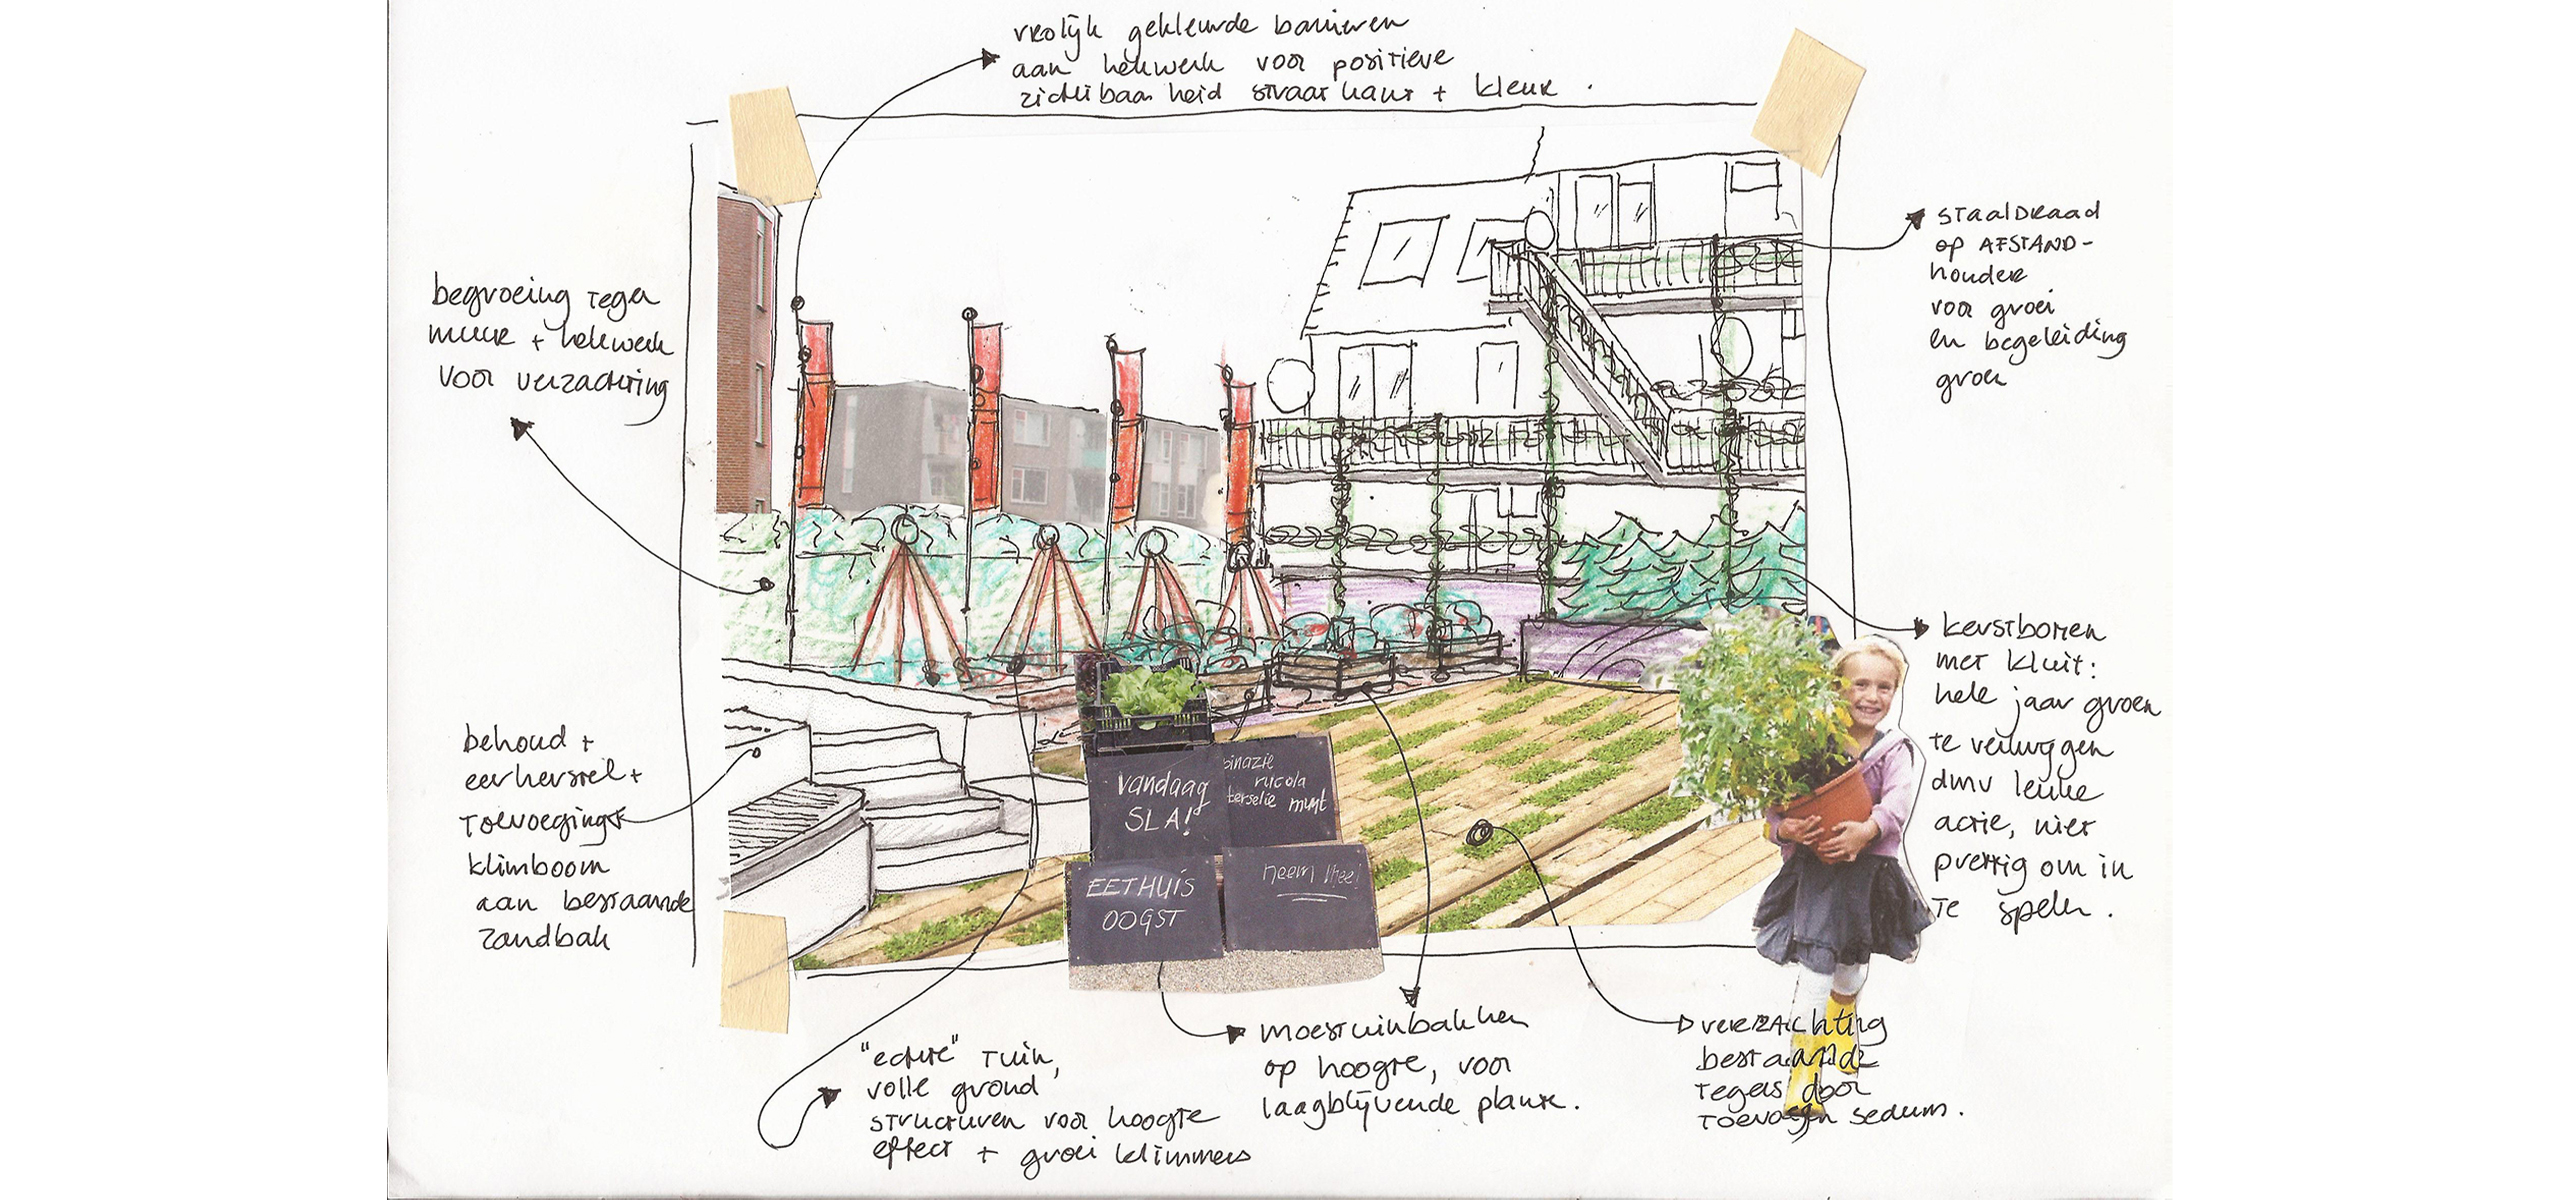 vrolijk gekleurde banieren
aan hekwerk voor positieve
zichtbaarheid straat kant + kleur.
staaldraad
op AFSTAND-
houder
voor groei
en begeleiding
groen
begroeing tegen
muur + hekwerk
voor verzachting
kerstbomen
met kluit:
hele jaar groen
te verkrijgen
dmv leuke
actie, niet
prettig om in
te spelen.
behoud +
eerherstel +
toevoeging
klimboom
aan bestaande
zandbak
vandaag
SLA!
pinazie
rucola
terselie munt
EETHUIS
OOGST
neem mee!
"echte" tuin,
volle grond
structuren voor hoogte
effect + groei klimmers
moestuinbakken
op hoogte, voor
laagblijvende plant.
verzachting
bestaande
tegels door
toevoegen sedum.